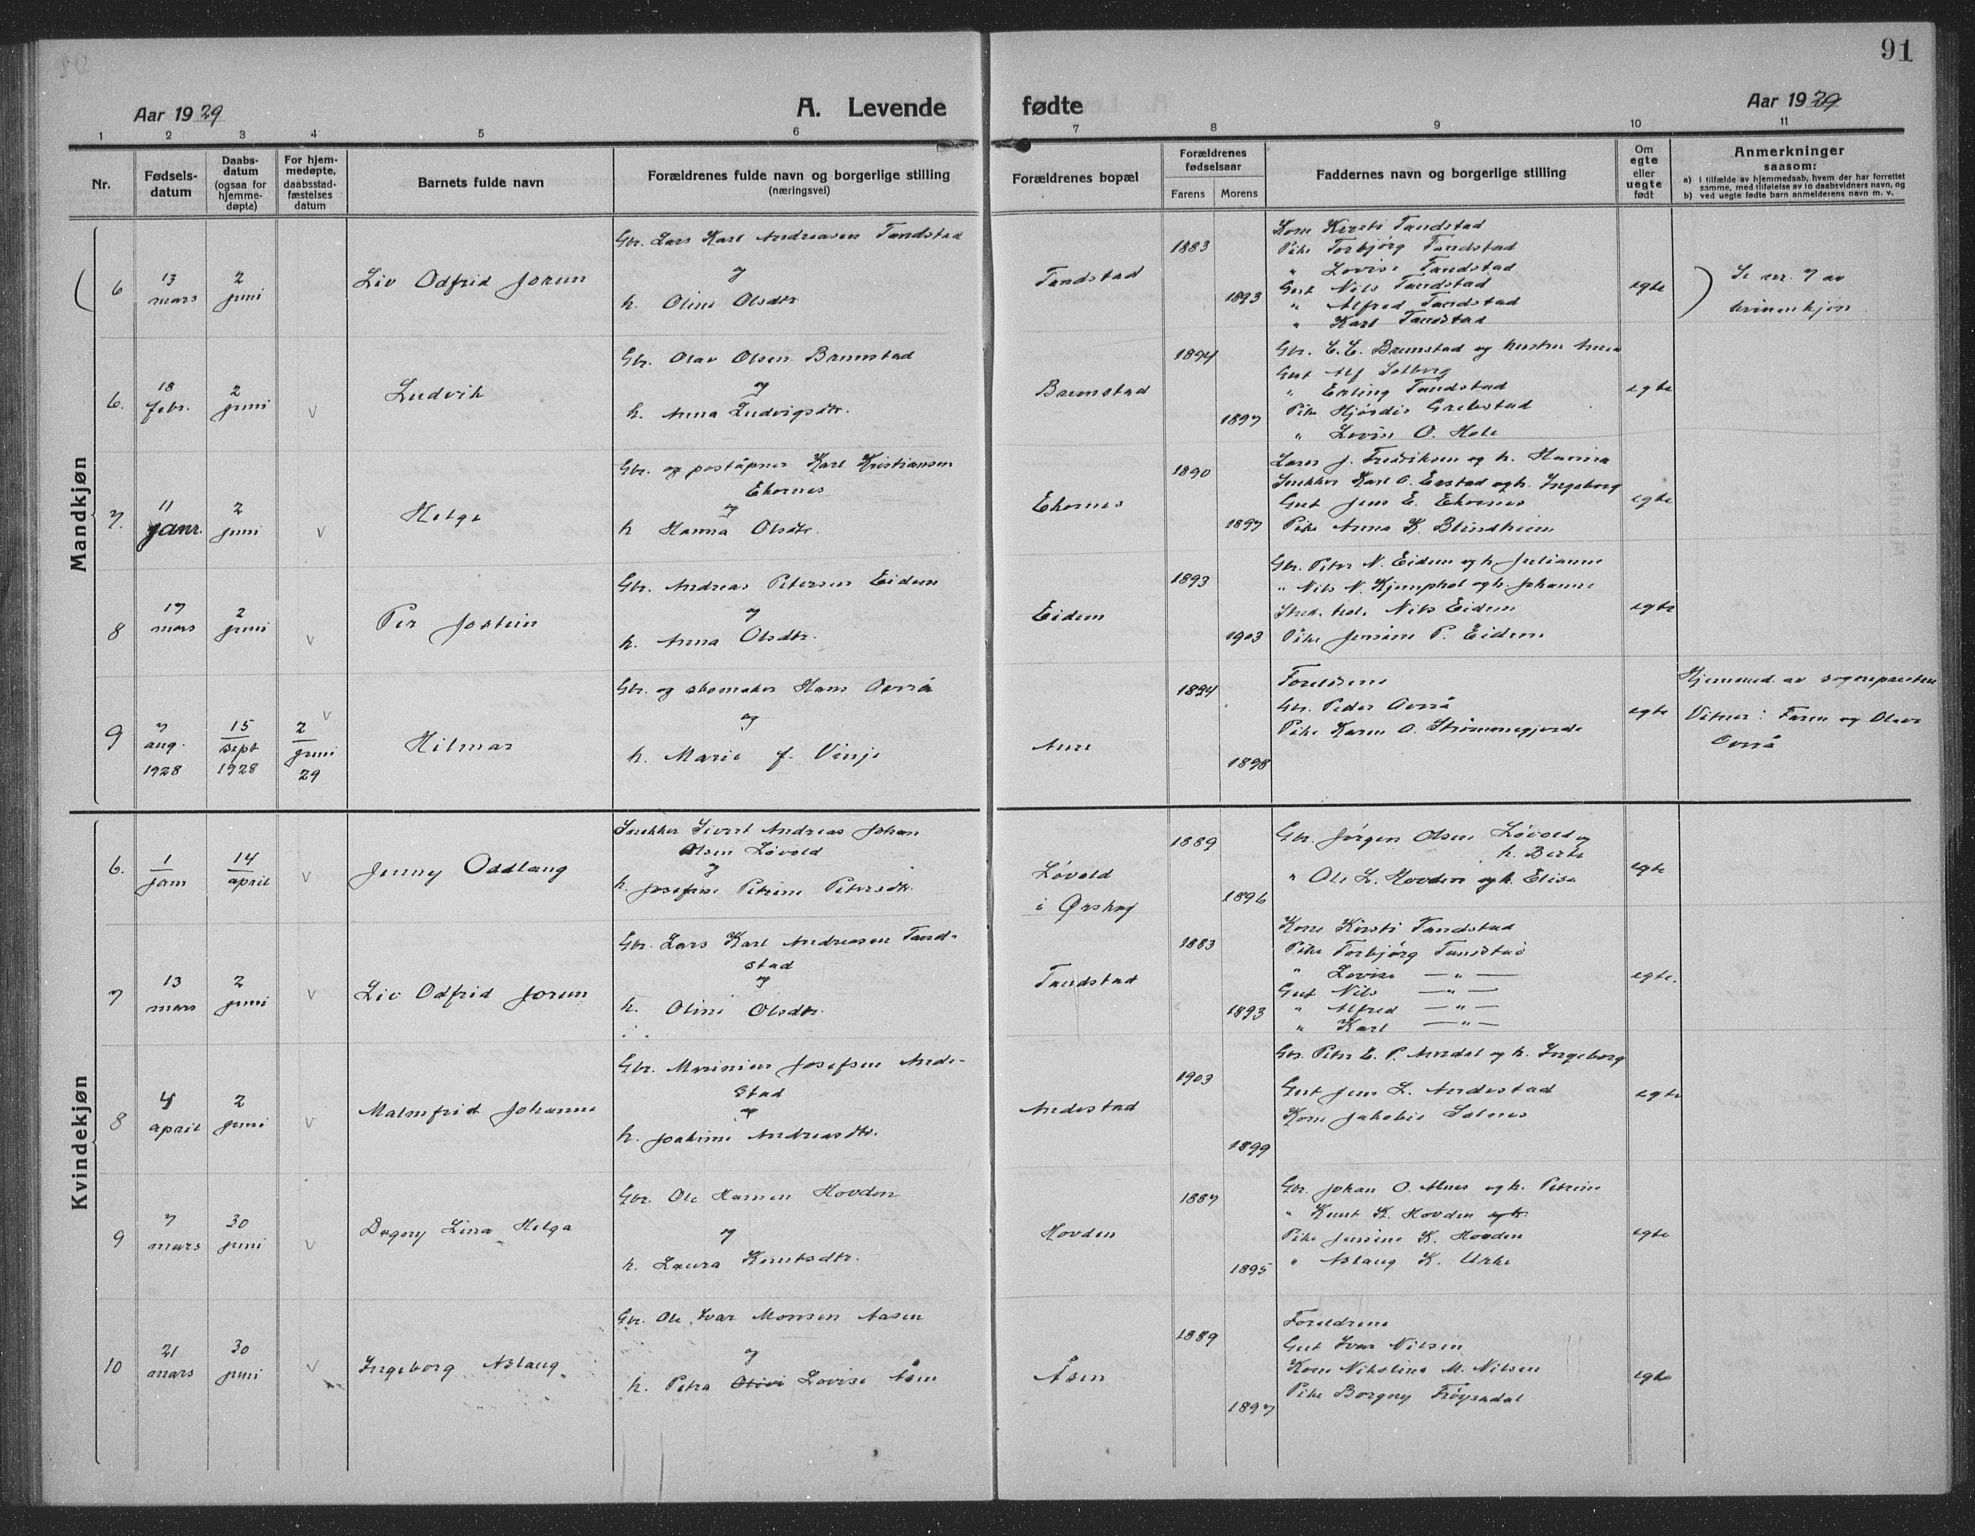 91
Aar 1929
A. Levende fødte
Aar 1929
1 2 3 4 5 6 7 8 9 10 11
Nr.
Fødsels-
datum
Daabs-
datum
(ogsaa for
hjemme-
døpte)
For hjem-
medøpte,
daabsstad-
fæstelses
datum
Barnets fulde navn
Forældrenes fulde navn og borgerlige stilling
(næringsvei)
Forældrenes bopæl
Forældrenes
fødselsaar
Farens Morens
Faddernes navn og borgerlige stilling
Om
egte
eller
uegte
født
Anmerkninger
saasom:
a) i tilfælde av hjemmedaab, hvem der har forrettet
samme, med tilføielse av to daabsvidners navn, og
b) ved uegte fødte barn anmelderens navn m. v.
Mandkjøn
6
13
mars
2
juni
Liv Odfrid Jorun
Gbr. Lars Karl Andreasen Tandstad
og
h. Oline Olsdtr
Tandstad
1883
1893
Kone Kirsti Tandstad
Pike Torbjørg Tandstad
" Lovise Tandstad
Gut Nils Tandstad
" Alfred Tandstad
" Karl Tandstad
egte
Se nr. 7 av
kvinnekjøn
6.
18
febr.
2
juni
v
Ludvik
Gbr. Olav Olsen Brunstad
og
h. Anna Ludvigsdtr.
Brunstad
1894
1897
Gbr. E. E. Brunstad og hustru Anna
Gut Alf Solborg
" Erling Tandstad
Pike Hjørdis Grebstad
" Lovise O. Hole
egte
7.
11
janr.
2
juni
v
Helge
Gbr. og poståpner Karl Kristiansen
Ekornes
og
h Hanna Olsdtr.
Ekornes
1890
1897
Lærer J. Fredriksen og h. Hanna
Snekker Karl O. Erstad og h. Ingeborg
Gut Jens E. Ekornes
Pike Anna K. Blindheim
egte
8
17
mars
2
juni
v
Per Jostein
Gbr. Andreas Petersen Eidem
og
h. Anna Olsdtr.
Eidem
1893
1903
Gbr. Peter N. Eidem og h. Julianne
" Nils N. Kjemphol og h. Johanne
Nils Eidem
Pike Jensine P. Eidem
egte
9
7
aug.
1928
15
sept
1928
v
2
juni
29
Hilmar
Gbr. og skomaker Hans Overå
og
h. Marie f. Vinje
Aure
1894
1898
Foreldrene
Gbr. Peder Overå
Pike Karen O. Strømmegjerde
egte
Hjemmed. av sognepresten
Vitner: Faren og Olav
Overå
Kvindekjøn
6.
1
jan
14
april
v
Jenny Oddlaug
Snekker Sivert Andreas Johan
Olsen Løvold
og
h. Josefine Petrine Petersdtr.
Løvold
i Ørskog
1889
1896
Gbr. Jørgen Olsen Løvold og
h. Berte
" Ole L. Hovden og h. Elise
egte
7
13
mars
2
juni
v
Liv Odfrid Jorun
Gbr. Lars Karl Andreasen Tand-
stad
og
h. Oline Olsdtr.
Tandstad
1883
1893
Kone Kirsti Tandstad
Pike Torbjørg Tandstad
" Lovise — " —
Gut Nils — " —
" Alfred — " —
" Karl — " —
egte.
8
4
april
2
juni
v
Malmfrid Johanne
Gbr. Marinius Josefsen Ande-
stad
og
h. Joakime Andreasdtr.
Andestad
1903
1899
Gbr. Peter E. P. Aurdal og h. Ingeborg
Gut Jens L. Andestad
Kone Jakobie Solnes
egte
9
7
mars
30
juni
v
Dagny Lina Helga
Gbr. Ole Hansen Hovden
og
h. Laura Knutsdtr.
Hovden
1887
1895
Gbr. Johan O. Alnes og h. Petrine
" Knut K. Hovden og h.
Pike Jensine K. Hovden
" Aslaug K. Urke
egte
10
21
mars
30
juni
v
Ingeborg Aslaug
Gbr. Ole Ivar Monsen Aasen
og
h. Petra Olivi Lovise Åsen
Åsen
1889
1897
Foreldrene
Gut Ivar Nilsen
Kone Nikoline M. Nilsen
Pike Borgny Frøysadal
egte